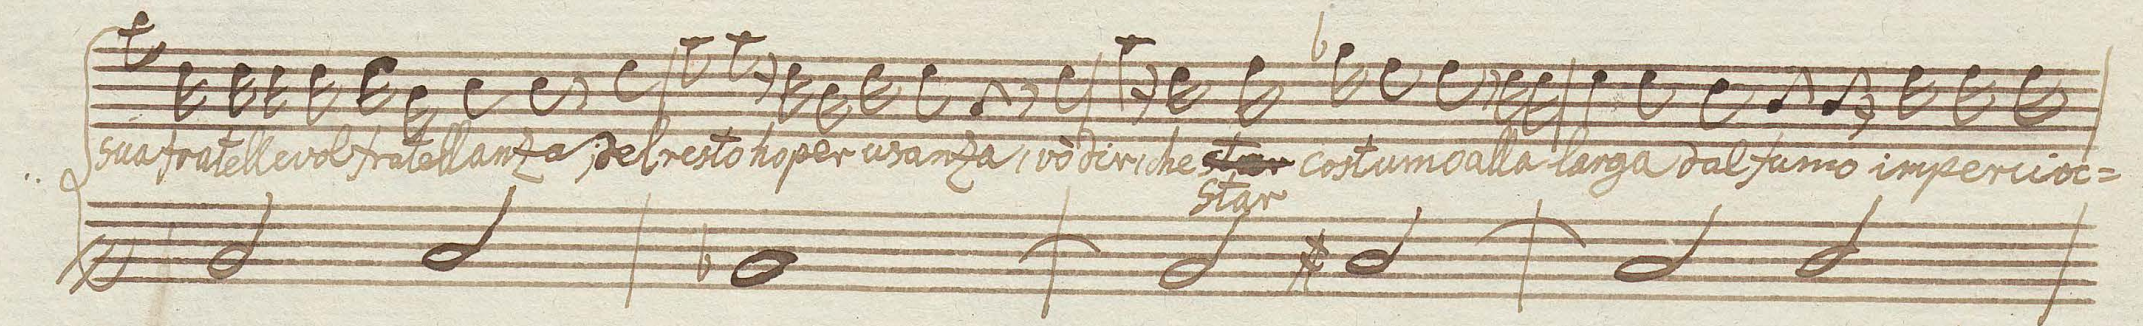 sua fratellevol fratellanza, del resto ho per usanza, i vò dir, che star costumo alla larga dal fumo impercioc=
Star